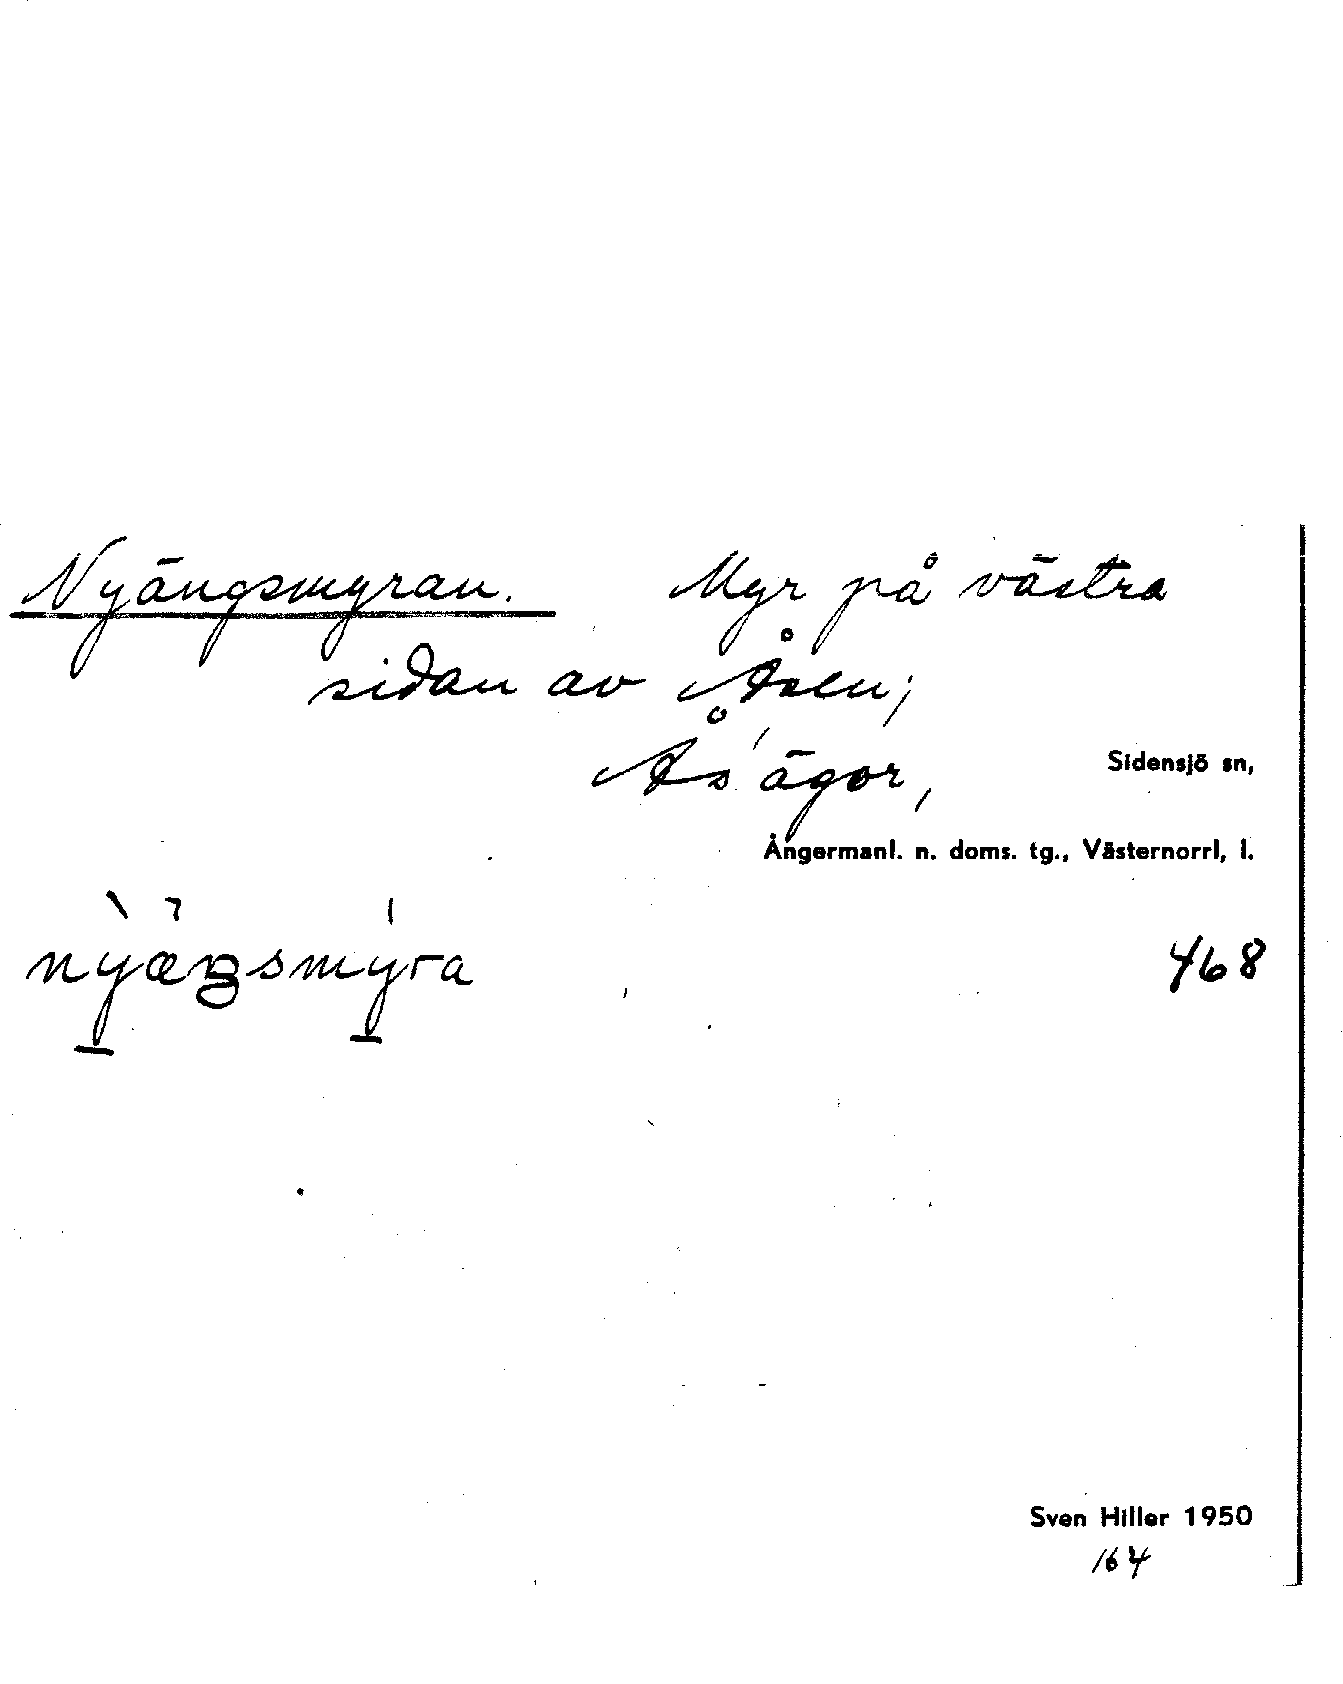 Nyängsmyran. Myr på västra
sidan av Åsen;
Ås ägor,
Sidensjö sn,
Ångermanl. n. doms. tg., Västernorrl, l.
nyæŋsmyra
468
Sven Hiller 1950
164